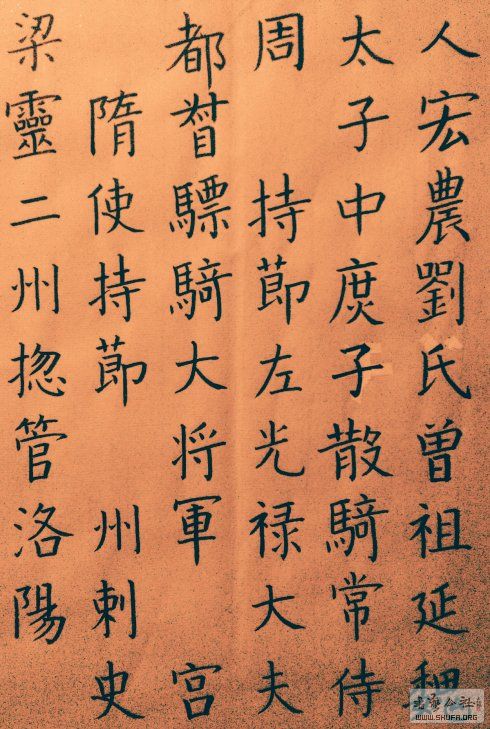 人宏農劉氏曾祖延
太子中庻子散騎常侍
周 持莭左光禄大夫
都督驃騎大将軍 宫
隋使持莭 州刺史
梁靈二州揔管洛陽
书法公社
WWW.SHUFA.ORG